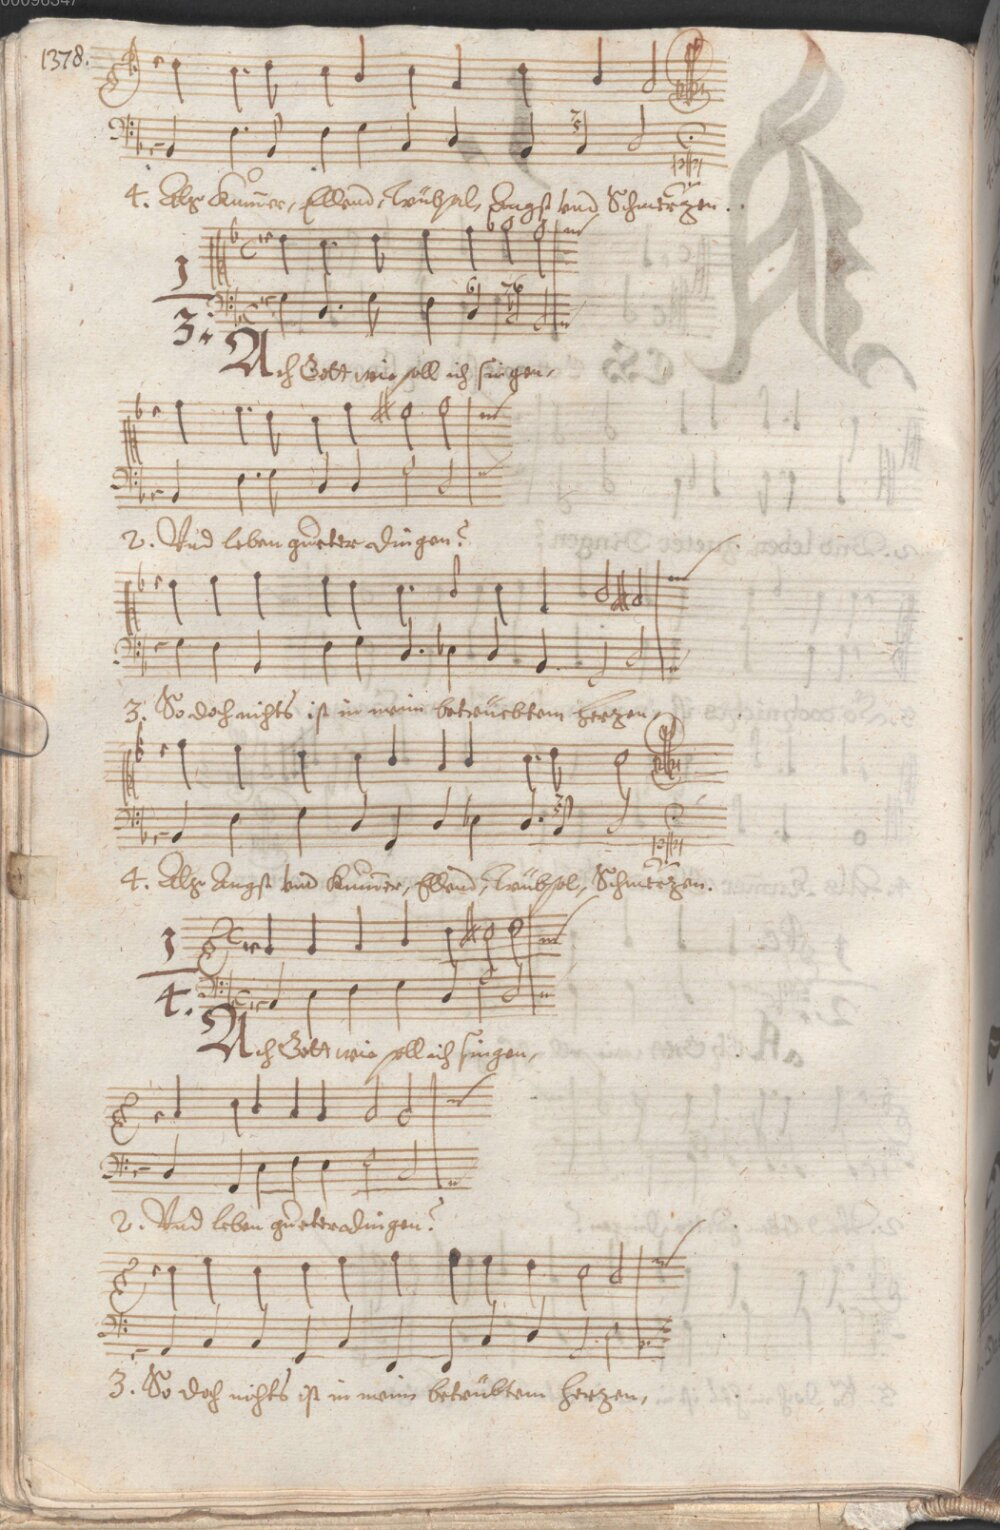 00096347
1378.
4. Alß Kum̃er, Ellend, Trübsal, Angst vnd Schmertzen.
1
3.
Ach Gott wie soll ich singen,
2. Vnd leben gueter dingen?
3. So doch nichts ist in meim betrüebtem hertzen,
4. Alß Angst vnd Kum̃er, Ellend, Trübsal, Schmertzen.
1
4.
Ach Gott wie soll ich singen,
2. Vnd leben gueter dingen?
3. So doch nichts ist in meim betrübtem hertzen,